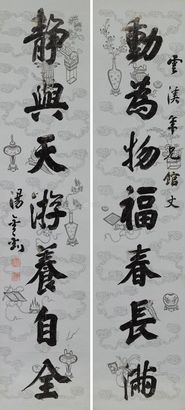 雲溪年兄館丈
動為物福春長滿
靜與天游養自全
湯金釗